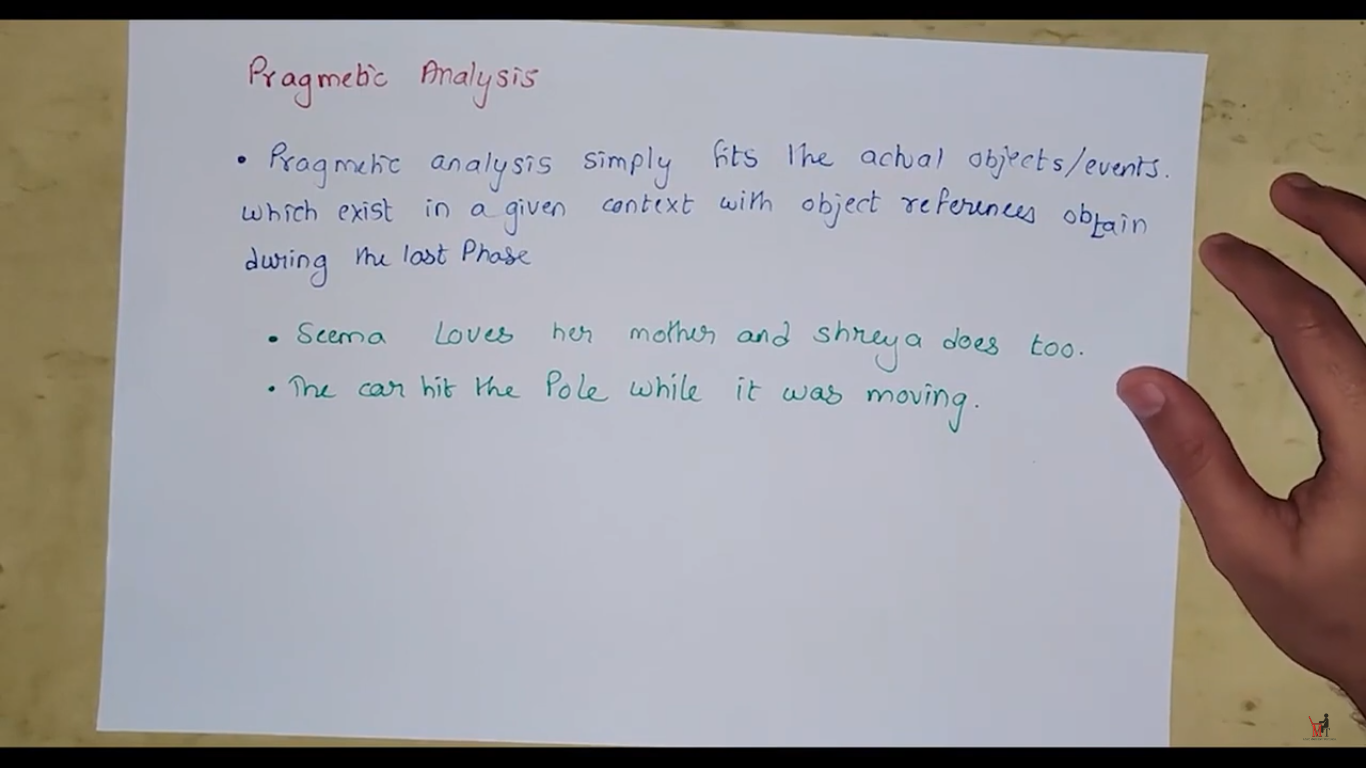 Pragmetic Analysis
• Pragmetic analysis simply fits the actual objects/events.
which exist in a given context with object references obtain
during the last Phase
• Seema Loves her mother and shreya does too.
• The car hit the Pole while it was moving.